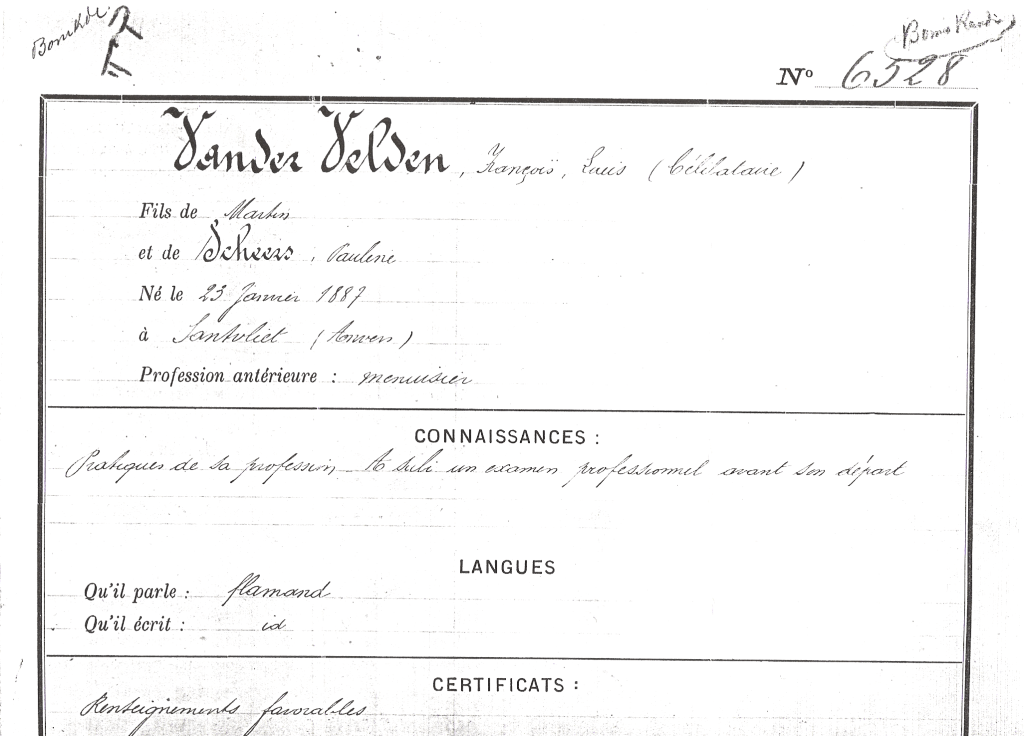 Nº 6528
Vander Velden, François, Louis (Célibataire)
Fils de Martin
et de Scheers, Pauline
Né le 23 Janvier 1887
à Santvliet (Anvers)
Profession antérieure : menuisier
CONNAISSANCES :
Pratiques de sa profession - A subi un examen professionnel avant son départ
LANGUES
Qu'il parle : flamand
Qu'il écrit : id
CERTIFICATS :
Renseignements favorables